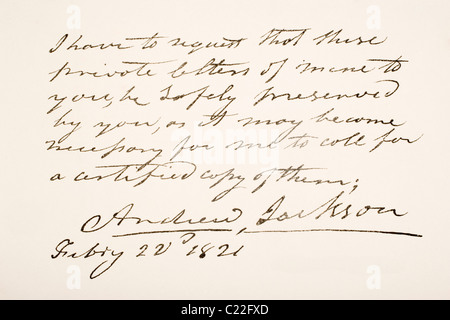 I have to request that these
private letters of mine to
you, be safely preserved
by you, as it may become
necessary for me to call for
a certified copy of them;
Andrew Jackson
Febry 22d 1821
alamy
C22FXD
www.alamy.com